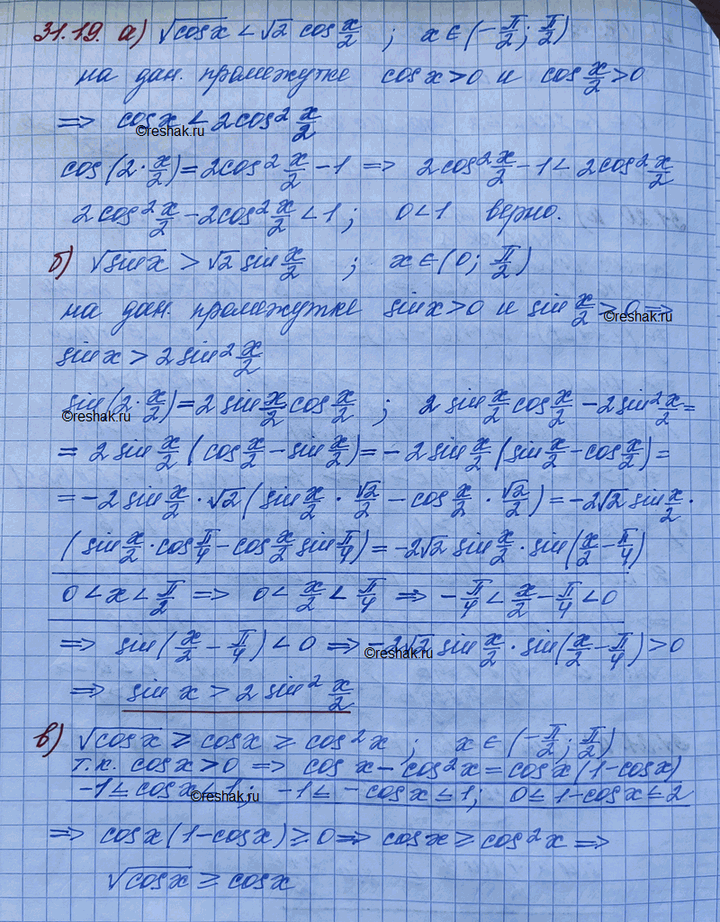 31.19. а) √cosx < √2 cos x/2 ; x∈(-π/2; π/2)
на дан. промежутке cosx>0 и cos x/2 >0
⇒ cosx < 2cos² x/2
©reshak.ru
cos(2·x/2)=2cos² x/2 -1 ⇒ 2cos² x/2 -1 < 2cos² x/2
2cos² x/2 - 2cos² x/2 < 1; 0<1 верно.
б) √sinx > √2 sin x/2 ; x∈(0; π/2)
на дан. промежутке sinx>0 и sin x/2 >0 ⇒
©reshak.ru
sinx > 2sin² x/2
sin(2·x/2)=2sin x/2 cos x/2 ; 2sin x/2 cos x/2 - 2sin² x/2 =
©reshak.ru
= 2sin x/2 (cos x/2 - sin x/2)= -2sin x/2 (sin x/2 - cos x/2)=
= -2sin x/2 · √2 (sin x/2 · √2/2 - cos x/2 · √2/2) = -2√2 sin x/2 ·
(sin x/2 · cos π/4 - cos x/2 sin π/4) = -2√2 sin x/2 · sin(x/2 - π/4)
0<x<π/2 ⇒ 0< x/2 < π/4 ⇒ -π/4 < x/2 - π/4 <0
⇒ sin(x/2 - π/4) <0 ⇒ -2√2 sin x/2 · sin(x/2 - π/4) >0
©reshak.ru
⇒ sin x > 2 sin² x/2
в) √cosx ≥ cosx ≥ cos²x ; x∈(-π/2; π/2)
т.к. cosx>0 ⇒ cos x - cos²x = cosx(1-cosx)
-1≤cosx≤1; -1≤ -cosx ≤1; 0≤1-cosx≤2
©reshak.ru
⇒ cosx(1-cosx)≥0 ⇒ cosx≥cos²x ⇒
√cosx ≥ cosx